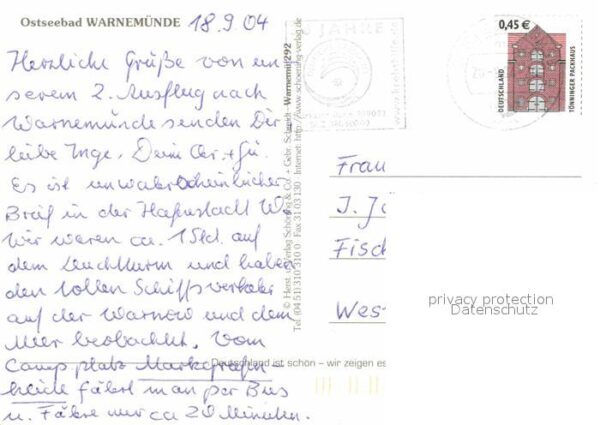 Ostseebad WARNEMÜNDE
18.9.04
Herzliche Grüße von un
serem 2. Ausflug nach
Warnemünde senden Dir
liebe Inge, Dein
Es ist unwahrscheinlicher
in der Hafenstadt
Wir waren ca. 1 Std. auf
dem Leuchtturm und haben
den tollen Schiffsverkehr
auf der Warnow und dem
Meer beobachtet. Vom
Campplatz Markgrafen-
heide fährt man per Bus
u. Fähre nur ca 20 Minuten.
Deutschland ist schön – wir zeigen es
© Herst. u. Verlag Schöning & Co. + Gebr. Schmidt · Warnemü 292
Tel. (04 51) 310 310 0 · Fax 31 03 130 · Internet: http://www.schoening-verlag.de
JAHRE
0,45 €
DEUTSCHLAND
TÖNNINGER PACKHAUS
Frau
Fisch
Wes
privacy protection
Datenschutz